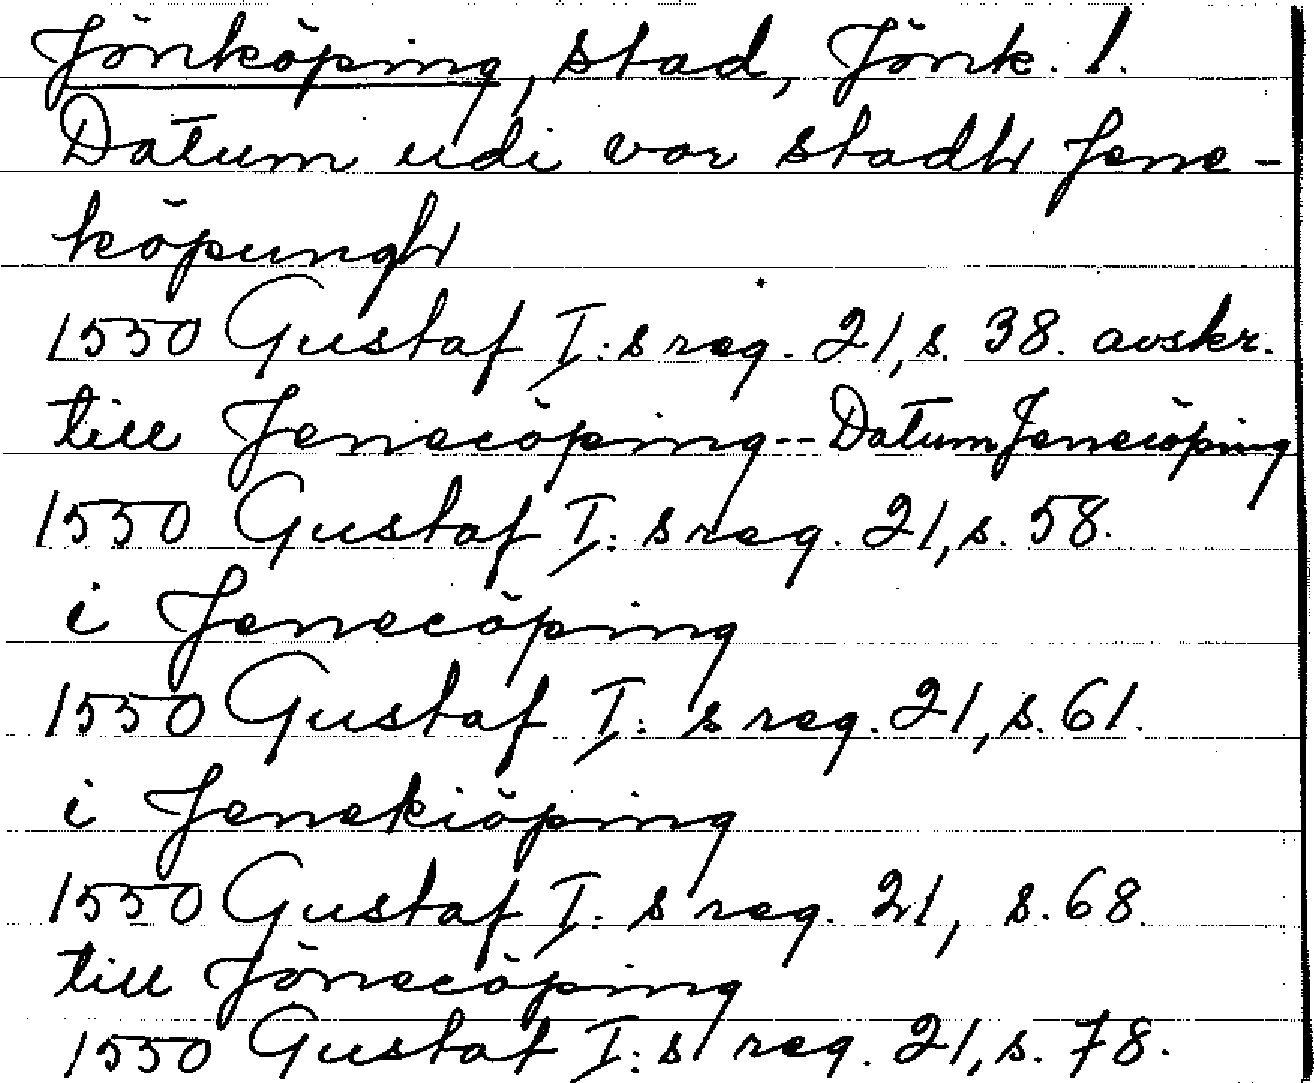 Jönköping, stad, Jönk. l.
Datum udi vor stadh Jene-
köpungh
1550 Gustaf I:s reg. 21, s. 38. avskr.
till Jenecöping -- Datum Jenecöping
1550 Gustaf I:s reg. 21, s. 58.
i Jenecöping
1550 Gustaf I:s reg. 21, s. 61.
i Jenekiöping
1550 Gustaf I:s reg. 21, s. 68.
till Jönecöping
1550 Gustaf I:s reg. 21, s. 78.